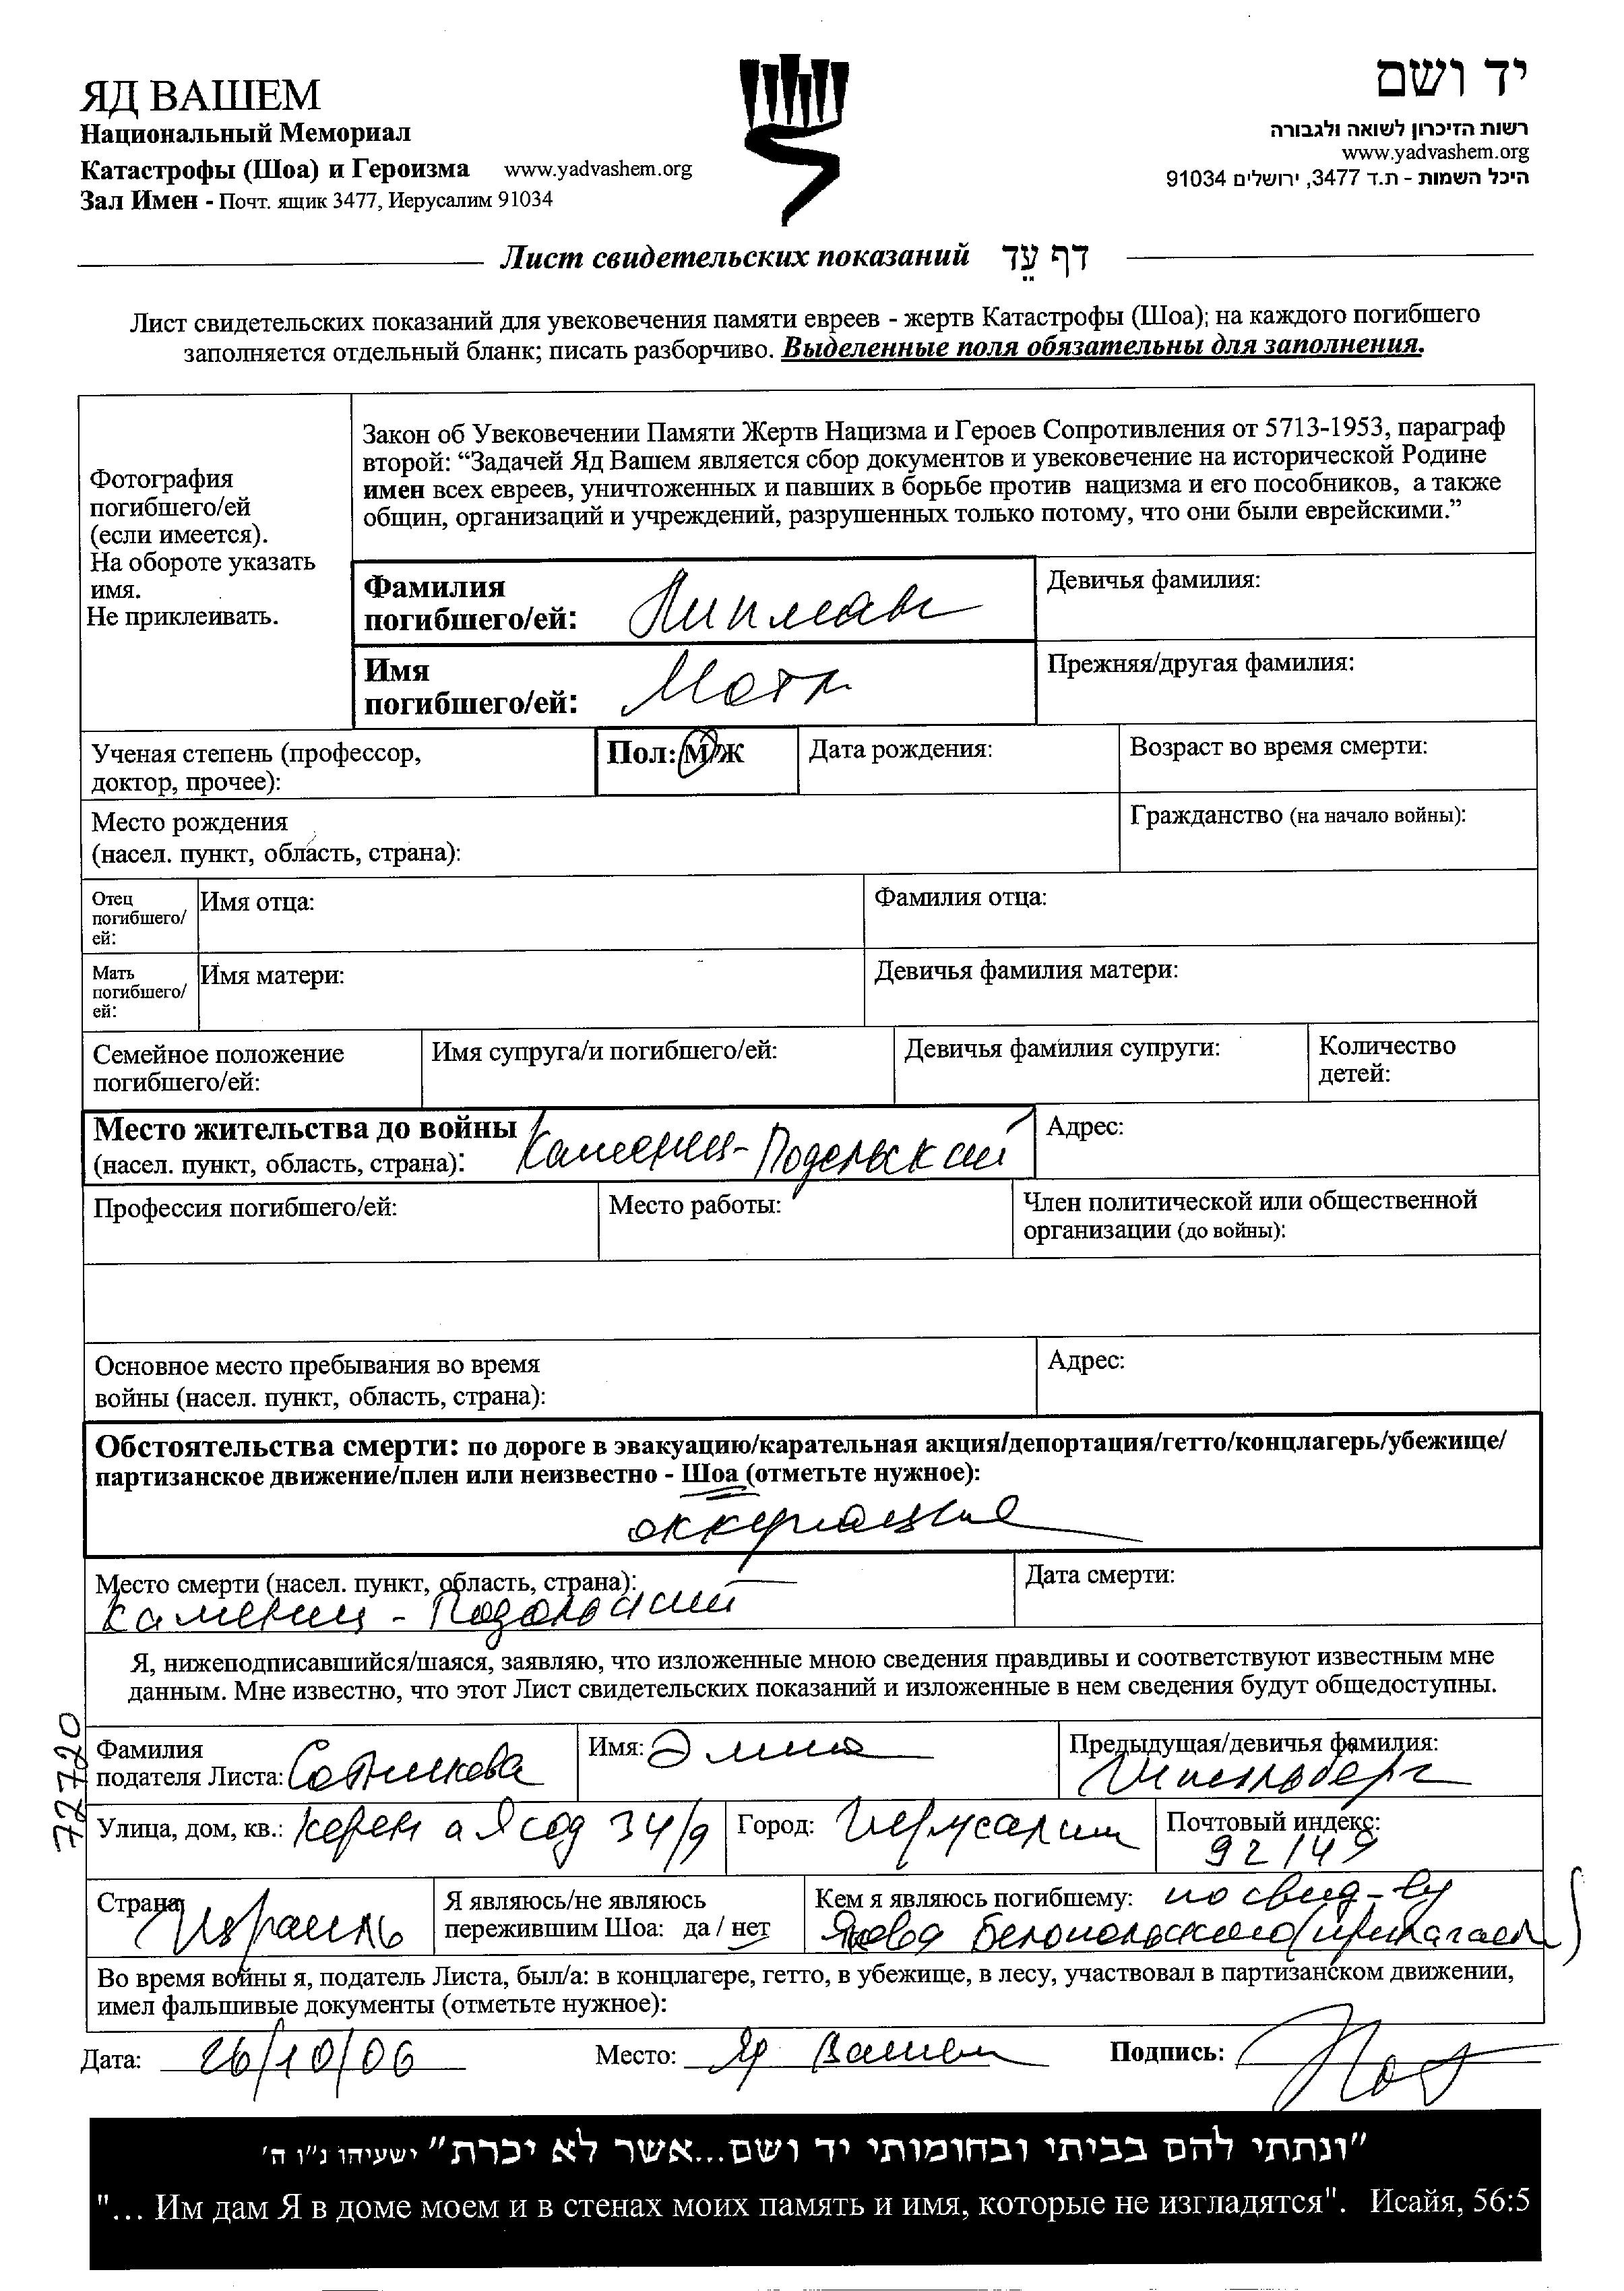 ЯД ВАШЕМ
Национальный Мемориал
Катастрофы (Шоа) и Героизма www.yadvashem.org
Зал Имен - Почт. ящик 3477, Иерусалим 91034
יד ושם
רשות הזיכרון לשואה ולגבורה
www.yadvashem.org
היכל השמות - ת.ד 3477, ירושלים 91034
Лист свидетельских показаний דף עֵד
Лист свидетельских показаний для увековечения памяти евреев - жертв Катастрофы (Шоа); на каждого погибшего
заполняется отдельный бланк; писать разборчиво. Выделенные поля обязательны для заполнения.
Фотография
погибшего/ей
(если имеется).
На обороте указать
имя.
Не приклеивать.
Закон об Увековечении Памяти Жертв Нацизма и Героев Сопротивления от 5713-1953, параграф
второй: “Задачей Яд Вашем является сбор документов и увековечение на исторической Родине
имен всех евреев, уничтоженных и павших в борьбе против нацизма и его пособников, а также
общин, организаций и учреждений, разрушенных только потому, что они были еврейскими.”
Фамилия
погибшего/ей: Липман
Девичья фамилия:
Имя
погибшего/ей: Мотл
Прежняя/другая фамилия:
Ученая степень (профессор,
доктор, прочее):
Пол: М/Ж
Дата рождения:
Возраст во время смерти:
Место рождения
(насел. пункт, область, страна):
Гражданство (на начало войны):
Отец
погибшего/
ей:
Имя отца:
Фамилия отца:
Мать
погибшего/
ей:
Имя матери:
Девичья фамилия матери:
Семейное положение
погибшего/ей:
Имя супруга/и погибшего/ей:
Девичья фамилия супруги:
Количество
детей:
Место жительства до войны
(насел. пункт, область, страна): Каменец-Подольский
Адрес:
Профессия погибшего/ей:
Место работы:
Член политической или общественной
организации (до войны):
Основное место пребывания во время
войны (насел. пункт, область, страна):
Адрес:
Обстоятельства смерти: по дороге в эвакуацию/карательная акция/депортация/гетто/концлагерь/убежище/
партизанское движение/плен или неизвестно - Шоа (отметьте нужное):
оккупация
Место смерти (насел. пункт, область, страна):
Каменец - Подольский
Дата смерти:
Я, нижеподписавшийся/шаяся, заявляю, что изложенные мною сведения правдивы и соответствуют известным мне
данным. Мне известно, что этот Лист свидетельских показаний и изложенные в нем сведения будут общедоступны.
72720
Фамилия
подателя Листа: Сотникова
Имя: Элина
Предыдущая/девичья фамилия:
Шпильберг
Улица, дом, кв.: Керен а Ясод 34/9
Город: Иерусалим
Почтовый индекс:
92149
Страна: Израиль
Я являюсь/не являюсь
пережившим Шоа: да / нет
Кем я являюсь погибшему: по свид-ву
Якова Белопольского (прилагаем)
Во время войны я, податель Листа, был/а: в концлагере, гетто, в убежище, в лесу, участвовал в партизанском движении,
имел фальшивые документы (отметьте нужное):
Дата: 26/10/06
Место: Яд Вашем
Подпись:
"ונתתי להם בביתי ובחומותי יד ושם...אשר לא יכרת" ישעיהו נ"ו ה'
"... Им дам Я в доме моем и в стенах моих память и имя, которые не изгладятся". Исайя, 56:5